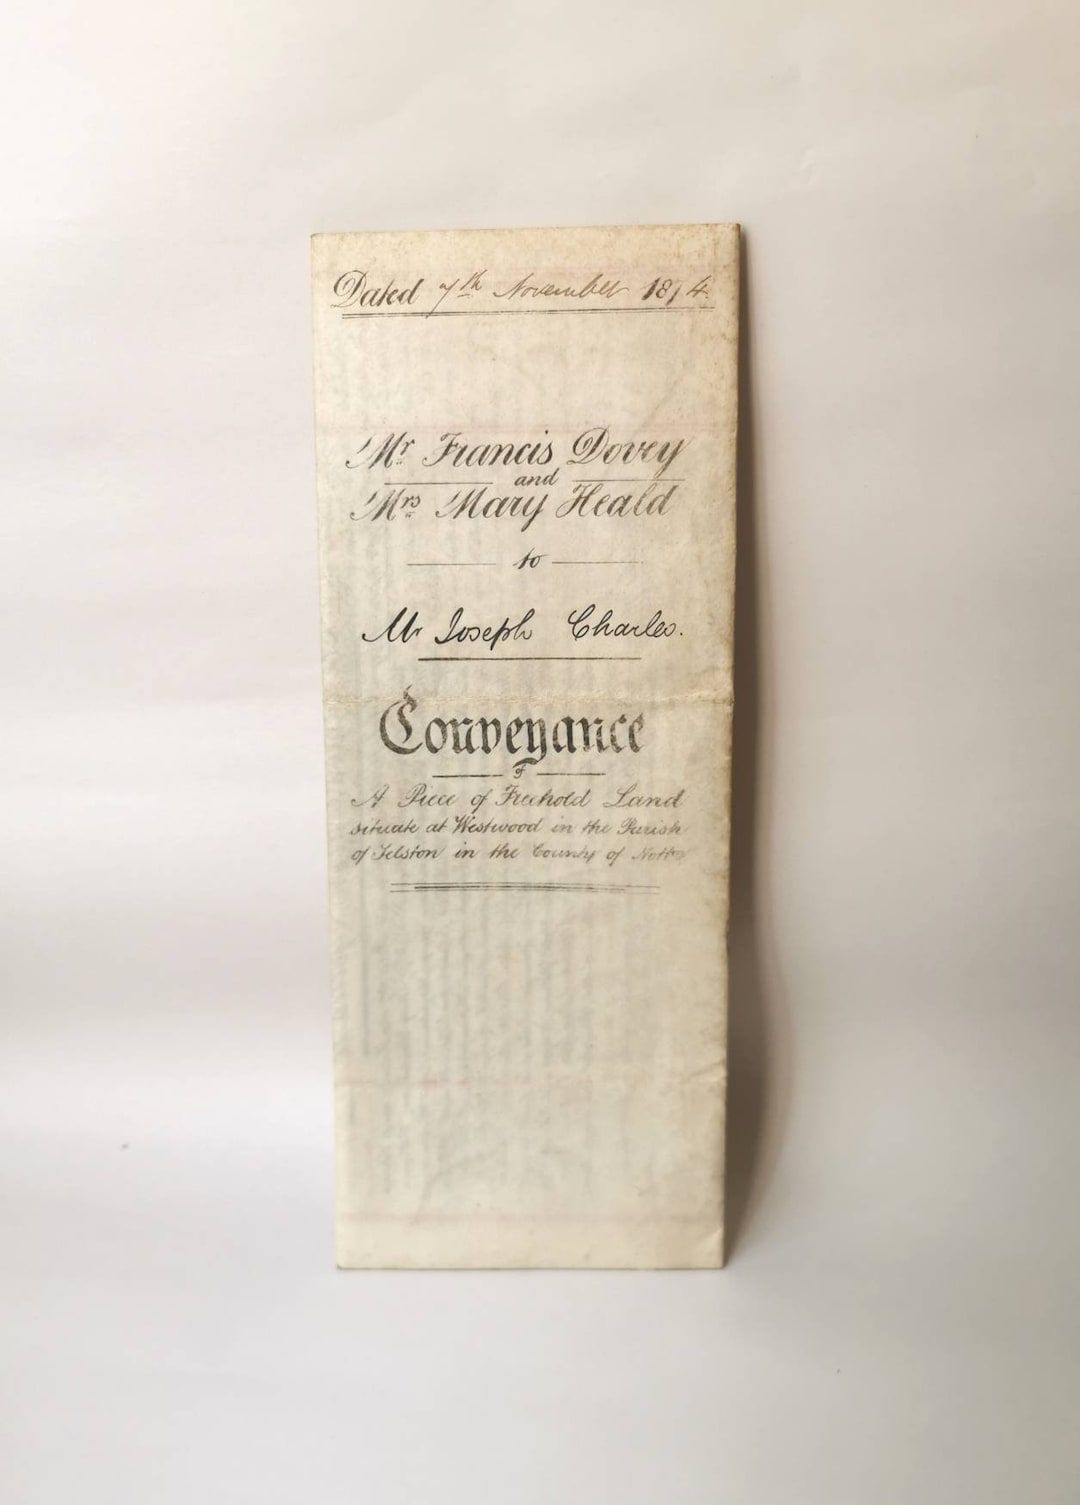 Dated 7th November 1874.
Mr Francis Dovey
and
Mrs Mary Heald
to
Mr Joseph Charles.
Conveyance
of
A Piece of Freehold Land
situate at Westwood in the Parish
of Selston in the County of Notts